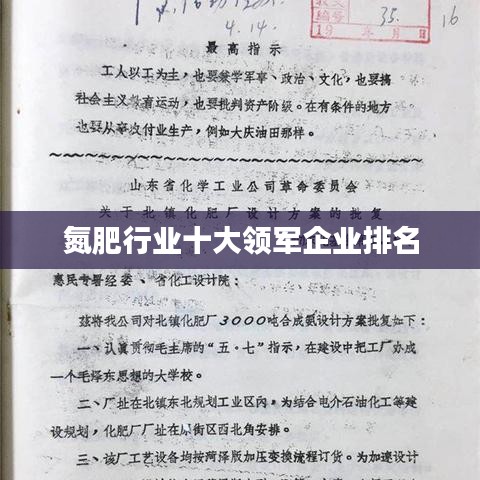 4.14.
编号 35.
16
19 年 月 日
最高指示
工人以工为主，也要兼学军事、政治、文化，也要搞
社会主义教育运动，也要批判资产阶级。在有条件的地方
也要从事农付业生产，例如大庆油田那样。
山东省化学工业公司革命委员会
关于北镇化肥厂设计方案的批复
氮肥行业十大领军企业排名
惠民专署经委、省化工设计院：
兹将我公司对北镇化肥厂3000吨合成氨设计方案批复如下：
一、认真贯彻毛主席的“五·七”指示，在建设中把工厂办成
一个毛泽东思想的大学校。
二、厂址在北镇东北规划工业区内，为结合电介石油化工等建
设规划，化肥厂厂址在原街区西北角安排。
三、该厂工艺设备均按菏泽版加压变换流程订货。为加速设计